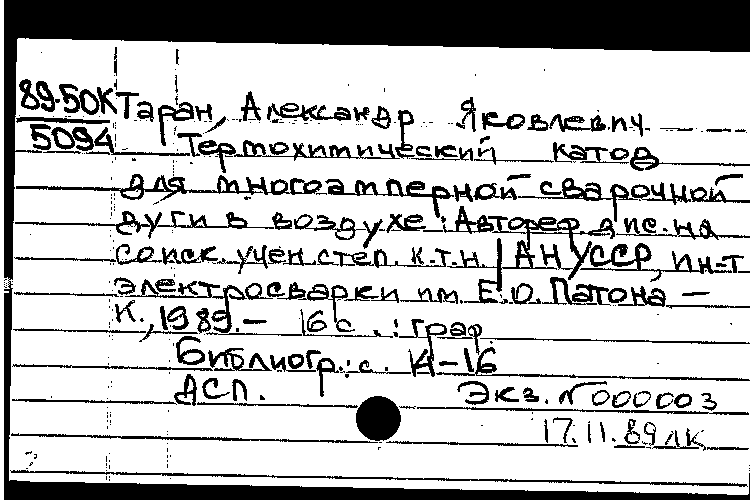 89-50К Таран, Александр Яковлевич
5094 Термохимический катод
для многоамперной сварочной
дуги в воздухе : Автореф. дис. на
соиск. учен. степ. к.т.н. / АН УССР, ин-т
электросварки им. Е.О. Патона —
К., 1989. — 16 с. : граф.
Библиогр.: с. 14-16
ДСП. Экз. № 000003
17.11.89 лк